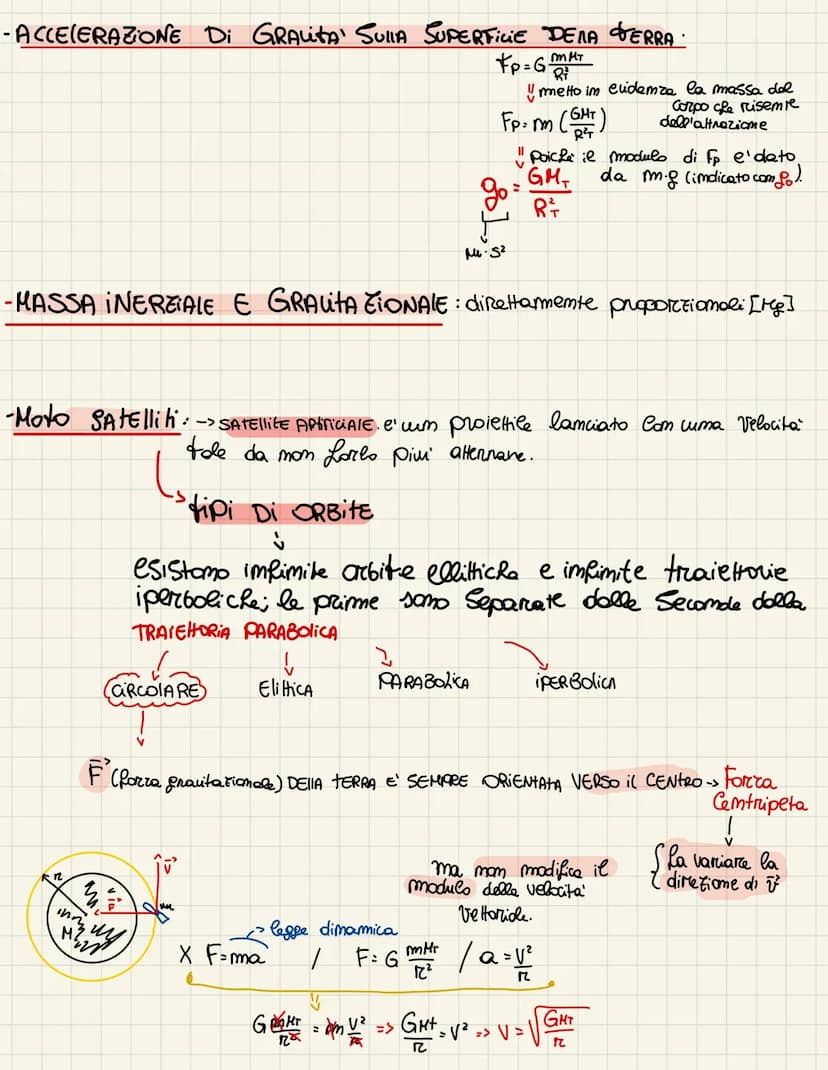 - ACCELERAZIONE Di GRAVITA' SULLA SUPERFICIE DELLA TERRA.
Fp = G mMT/RT²
⇓ metto in evidenza la massa del corpo che risente dell'attrazione
Fp = m (GMT/R²T)
⇓ poiché il modulo di Fp e' dato da m·g (indicato con g0).
g0 = GMT/R²T
M·S²
- MASSA INERZIALE E GRAVITAZIONALE : direttamente proporzionali [Kg]
- Moto SATELLITI: -> SATELLITE ARTIFICIALE. e' un proiettile lanciato con una velocita'
tale da non farlo piu' atterrare.
TIPI Di ORBITE
esistono infinite orbite ellittiche e infinite traiettorie
iperboliche; le prime sono separate dalle seconde dalla
TRAIETTORIA PARABOLICA
CIRCOLARE Elittica PARABOLICA iPERBOLICA
F⃗ (forza gravitazionale) DELLA TERRA E' SEMPRE ORIENTATA VERSO il CENTRO -> Forza
Centripeta
fa variare la
direzione di v⃗
ma non modifica il
modulo della velocita'
vettoriale.
r v⃗ F⃗ m M
-> legge dinamica
X F=ma / F= G mMT/r² / a = V²/r
G mMT/r² = m V²/r => GMT/r = V² => V = √(GMT/r)